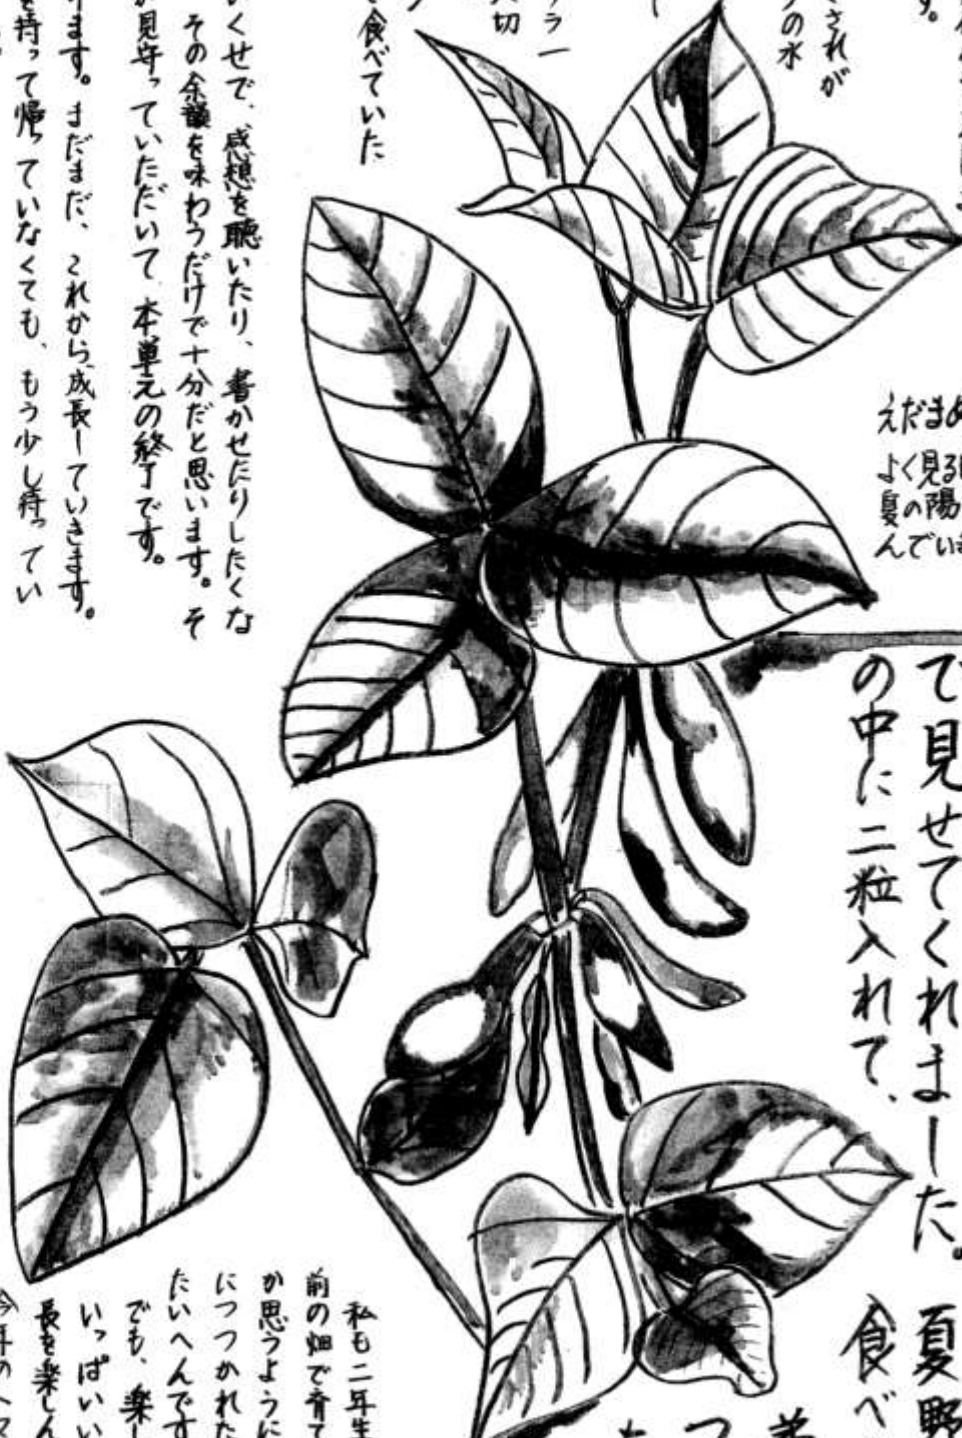 す。
されが
の水
フラー
切
食べていた
くせで、感想を聴いたり、書かせたりしたくな
その余韻を味わうだけで十分だと思います。そ
見守っていただいて、本単元の終了です。
ます。まだまだ、これから、成長していきます。
を持って帰っていなくても、もう少し待ってい
えだま
よく見る
夏の陽
んでい
で見せてくれました。夏野
の中に二粒入れて、食べ
私も二年生
前の畑で育て
か思うように
につつかれた
たいへんです
でも、楽し
いっぱいい
長を楽しん
今年の